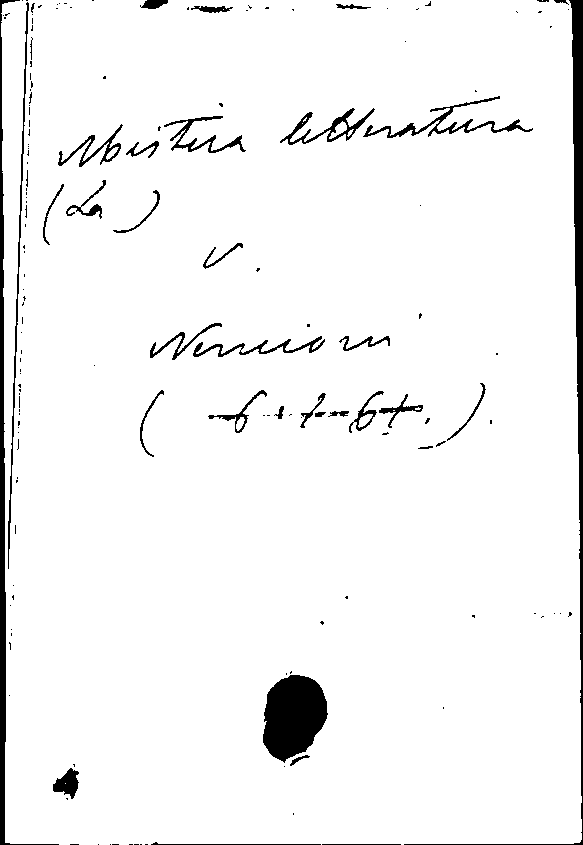 Mistica letteratura
(La)
V.
Nencioni
( 6 . 7 - 67. ).